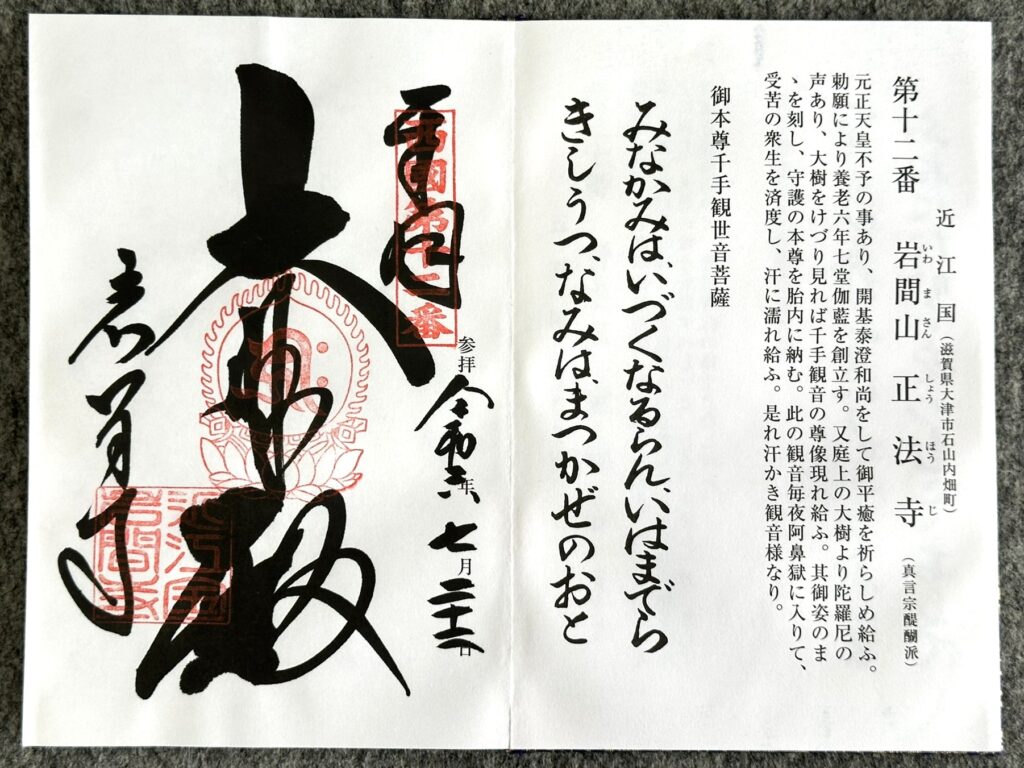 近江国（滋賀県大津市石山内畑町）
第十二番 岩間山 正法寺（真言宗醍醐派）
いわ ま さん しょう ほう じ
元正天皇不予の事あり、開基泰澄和尚をして御平癒を祈らしめ給ふ。
勅願により養老六年七堂伽藍を創立す。又庭上の大樹より陀羅尼の
声あり、大樹をけづり見れば千手観音の尊像現れ給ふ。其御姿のま
ゝを刻し、守護の本尊を胎内に納む。此の観音毎夜阿鼻獄に入りて、
受苦の衆生を済度し、汗に濡れ給ふ。是れ汗かき観音様なり。
御本尊千手観世音菩薩
みなかみは、いづくなるらん、いはまでら
きしうつ、なみは、まつかぜのおと
参拝 令和六年 七月 二十二日
西國第十二番
大悲殿
近江国
岩間寺